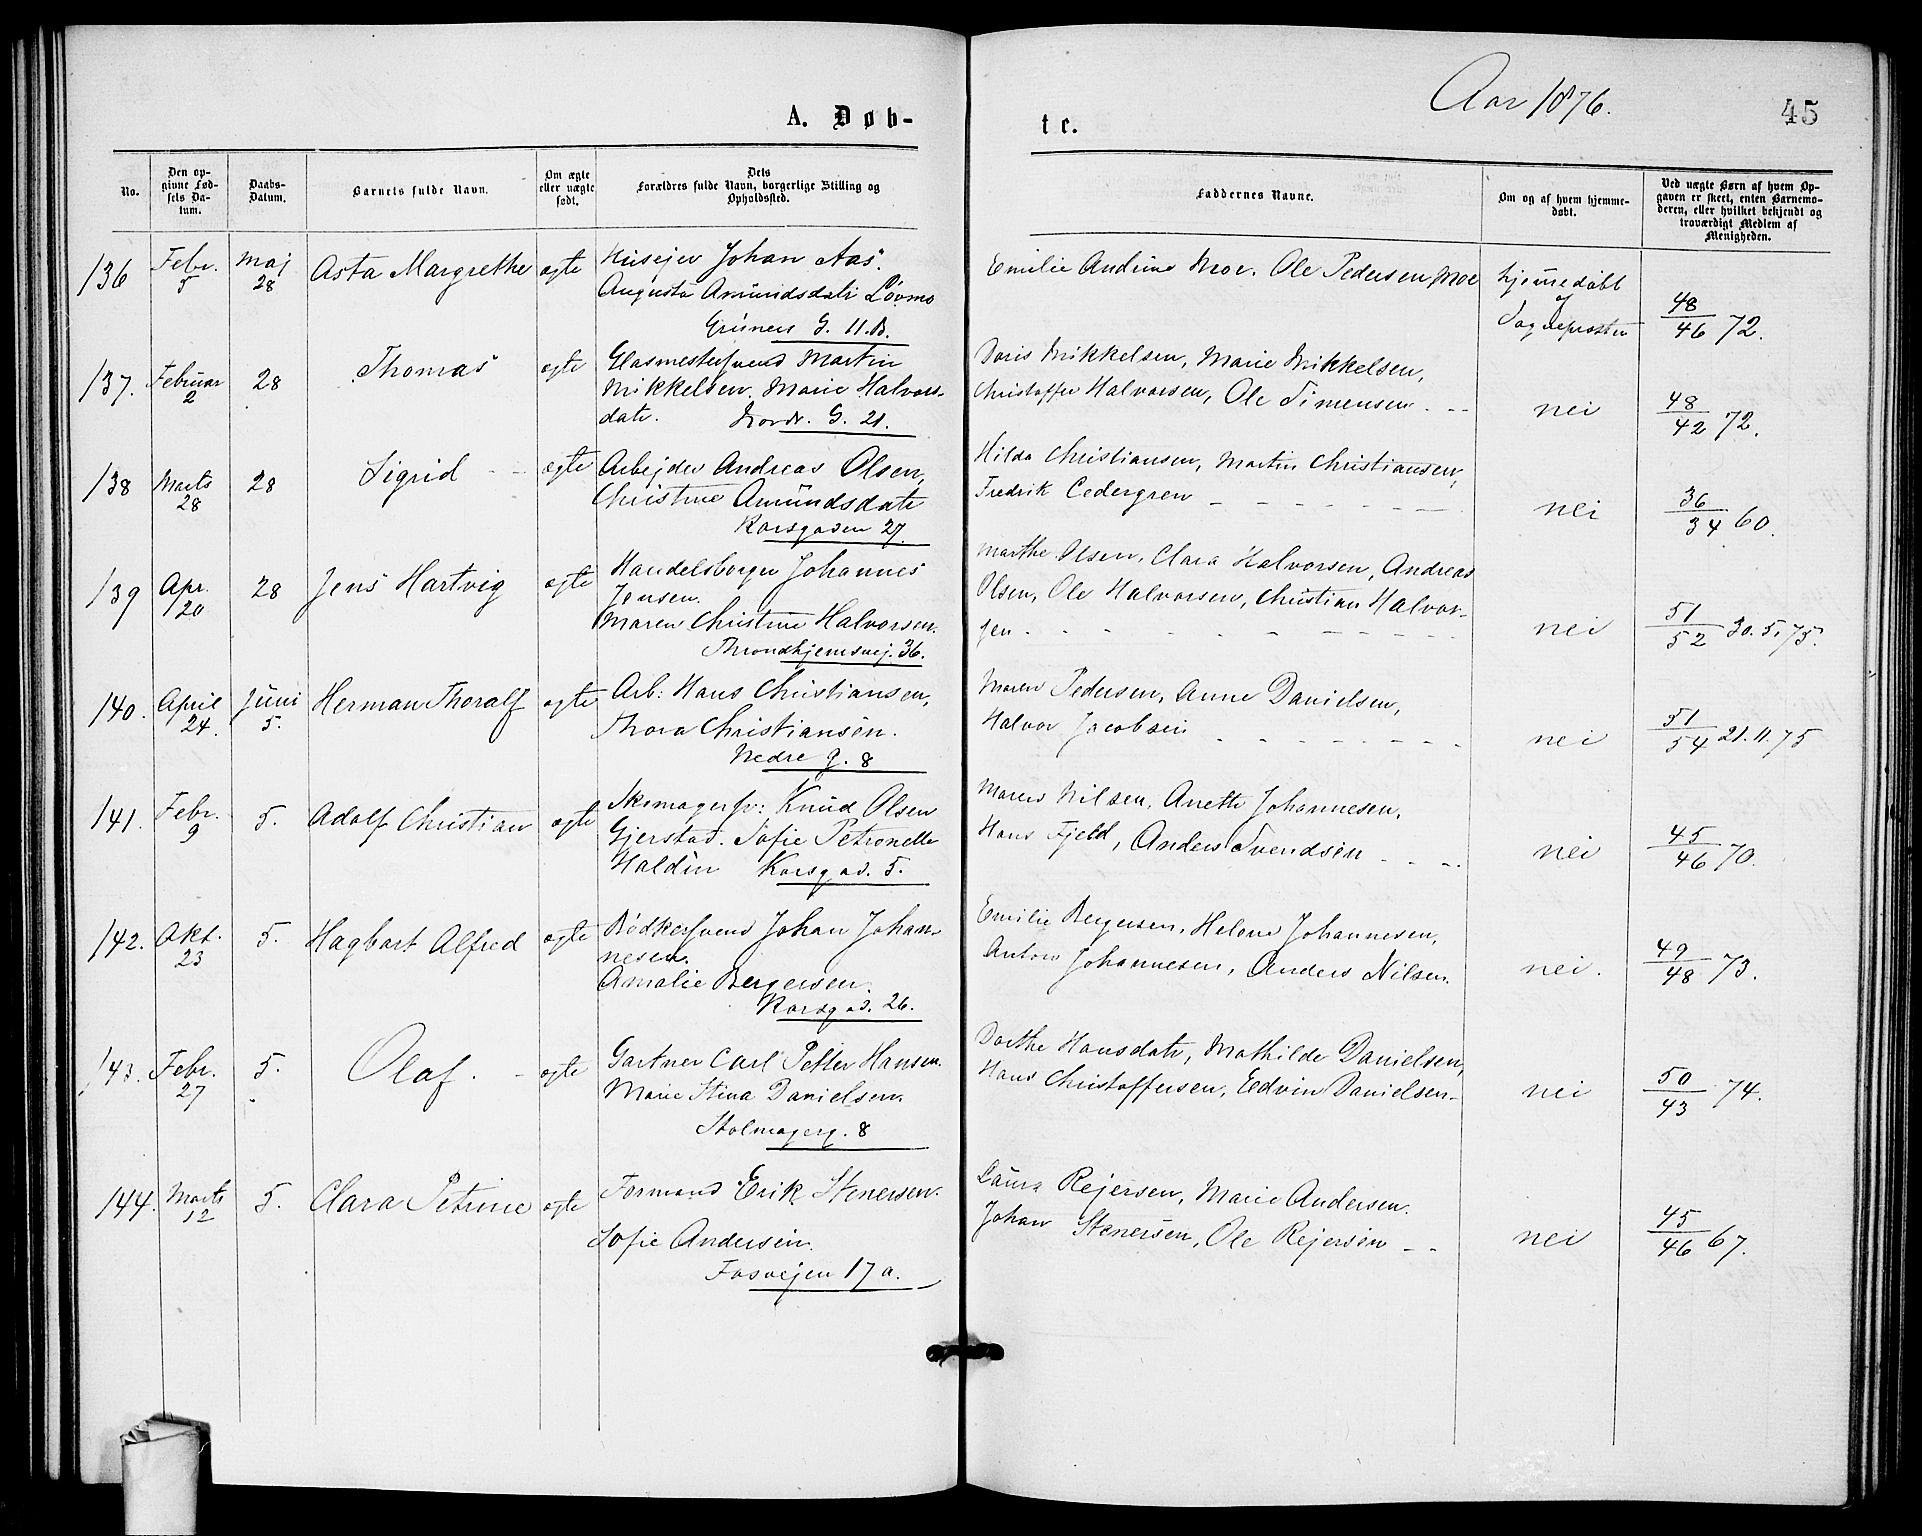 Aar 1876.
45
A. Døb-
te.
No.
Den op-
givne Fød-
sels Da-
tum.
Daabs-
Datum.
Barnets fulde Navn.
Om ægte
eller uægte
født.
Dets
Forældres fulde Navn, borgerlige Stilling og
Opholdssted.
Faddernes Navne.
Om og af hvem hjemme-
døbt.
Ved uægte Børn af hvem Op-
gaven er skeet, enten Barnemo-
deren, eller hvilket bekjendt og
troværdigt Medlem af
Menigheden.
136 Febr. 5 Maj 28 Asta Margrethe ægte Huseier Johan Aas.
Augusta Amundsdatr Løvmo
Grüners G. 11.B.
Emilie Andrine Moe. Ole Pedersen Moe
hjemmedøbt
af
Sognepresten
48/46 72.
137. Februar 2 28 Thomas ægte Glasmestersvend Martin
Mikkelsen. Marie Halvors-
datr. Nordr. G. 21.
Doris Mikkelsen, Marie Mikkelsen,
Christoffer Halvorsen, Ole Simensen - -
nei
48/42 72.
138 Marts 28 28 Sigrid - - ægte Arbejder Andreas Olsen,
Christine Amundsdatr
Korsgaden 27.
Hilda Christiansen, Martin Christiansen,
Fredrik Cedergren - - - - - -
nei
36/34 60.
139 Apr. 20 28 Jens Hartvig ægte Handelsborger Johannes
Jensen.
Maren Christine Halvorsen.
Throndhjemsvej. 36.
Marthe Olsen, Clara Halvorsen, Andreas
Olsen, Ole Halvorsen, Christian Halvor-
sen - - - - - - - -
nei
51/52 30.5.75.
140. April 24. Juni 5. Herman Thoralf ægte Arb: Hans Christiansen,
Thora Christiansen.
Nedre g. 8
Maren Pedersen, Anne Danielsen,
Halvor Jacobsen - - - - - -
nei
51/54 21.11.75
141. Febr. 9 5. Adolf Christian ægte Skomagersv: Knud Olsen
Gjerstad. Sofie Petronelle
Haldin Korsgad. 5.
Maren Nilsen, Anette Johannesen,
Hans Fjeld, Anders Svendsen - - -
nei
45/46 70.
142. Okt. 23 5. Hagbart Alfred ægte Bødkersvend Johan Johan-
nesen.
Amalie Bergersen.
Korsgad. 26.
Emilie Bergersen, Helene Johannesen,
Anton Johannesen, Anders Nilsen.
nei.
49/48 73.
143. Febr. 27 5. Olaf. - ægte Gartner Carl Petter Hansen.
Marie Stina Danielsen.
Stolmagerg. 8
Dorthe Hansdatr, Mathilde Danielsen,
Hans Christoffersen, Edvin Danielsen -
nei
50/43 74.
144. Marts 12 5. Clara Petrine ægte Formand Erik Stenersen.
Sofie Andersen.
Fosvejen 17 a.
Laura Rejersen, Marie Andersen.
Johan Stenersen, Ole Rejersen - -
nei
45/46 67.